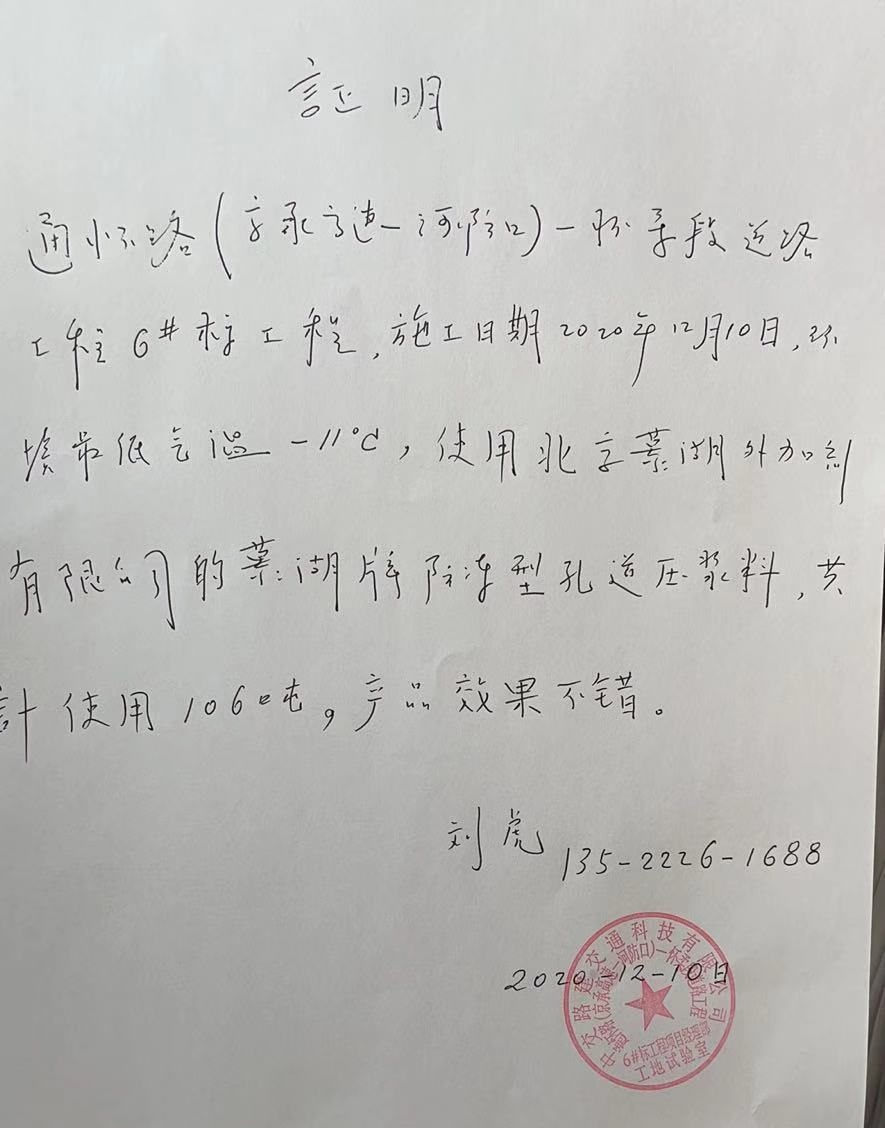 証明
通怀路(京承高速一河防口)一标京段道路
工程6#标工程,施工日期2020年12月10日,环
境最低气温-11℃,使用北京慕湖外加剂
有限公司的慕湖牌防冻型孔道压浆料,共
計使用106吨。产品效果不错。
刘虎 135-2226-1688
2020-12-10日
中交路建交通科技有限公司
(京承高速一河防口)一怀
道路工程
6#标工程项目经理部
工地试验室